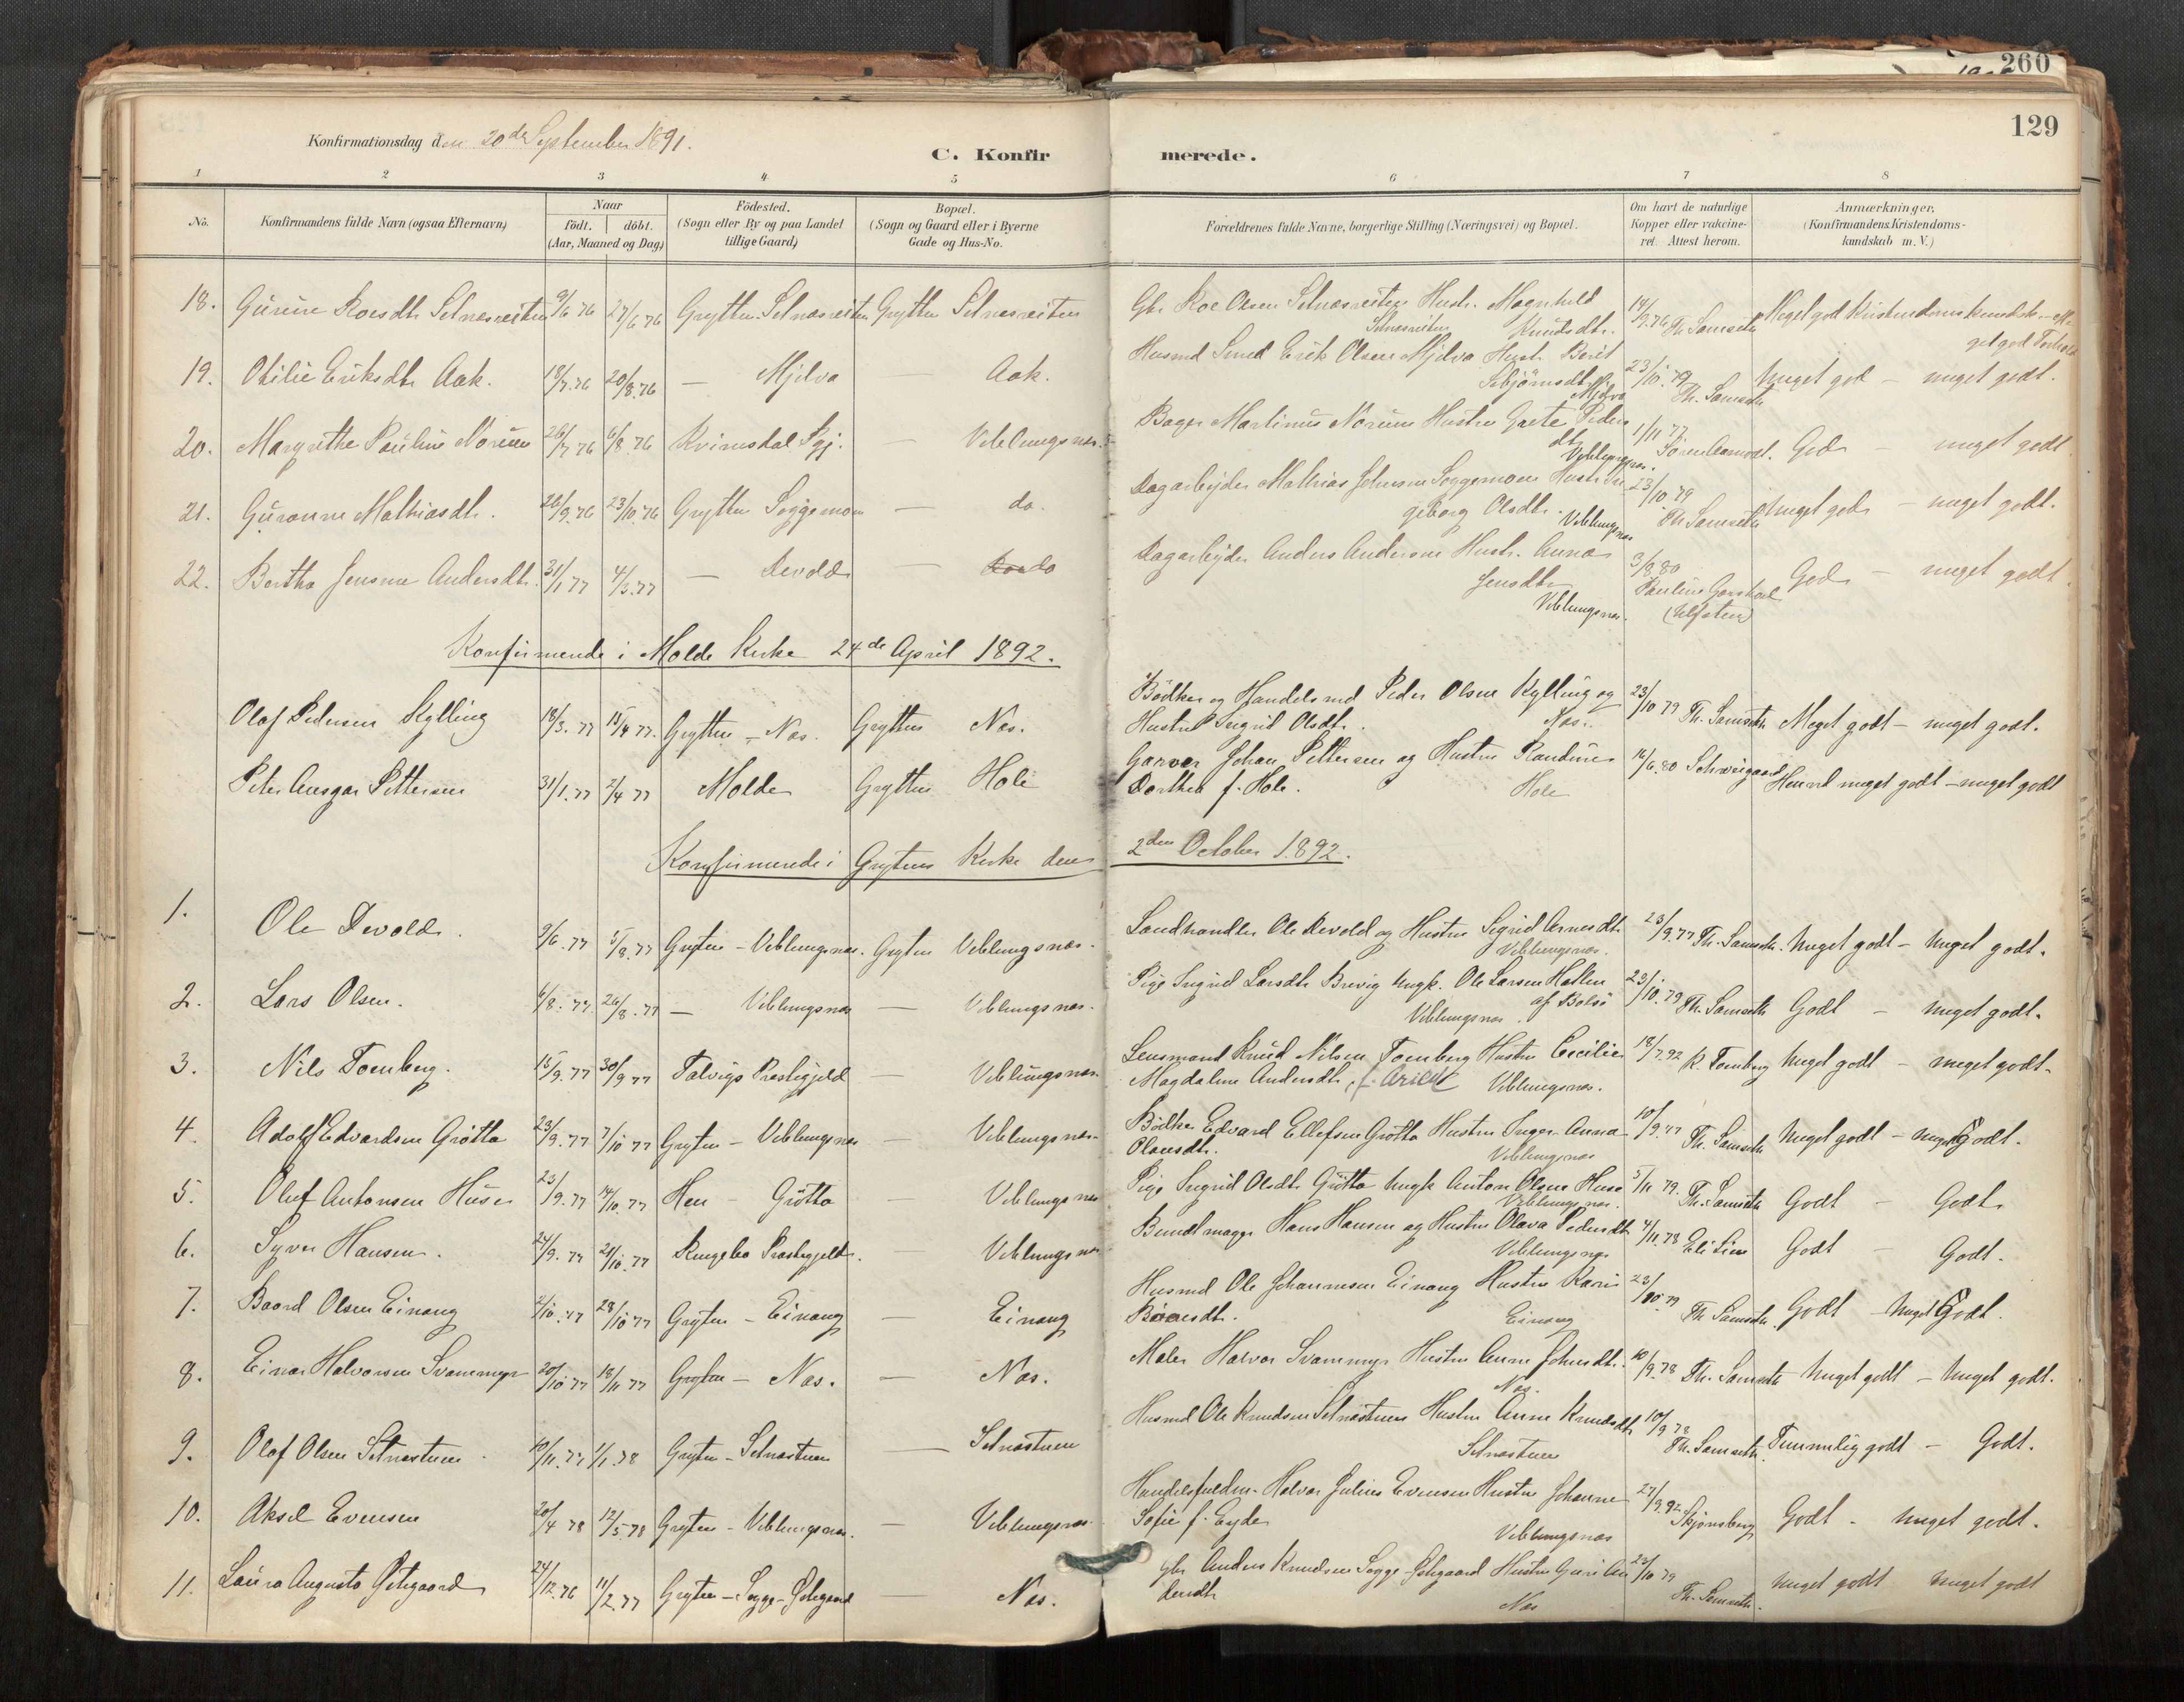 260
129
Konfirmationsdag den 20de September 1891.
C. Konfirmerede.
1 2 3 4 5 6 7 8
No. Konfirmandens fulde Navn (ogsaa Efternavn) Naar födt. döbt. (Aar, Maaned og Dag) Födested. (Sogn eller By og paa Landet tillige Gaard) Bopæl. (Sogn og Gaard eller i Byerne Gade og Hus-No. Forældrenes fulde Navne, borgerlige Stilling (Næringsvei) og Bopæl. Om havt de naturlige Kopper eller vakcineret. Attest herom. Anmærkninger. (Konfirmandens Kristendomskundskab m.V.)
18. Gurine Roesdtr Setnesreiten 9/6 76 27/6 76 Grytten Setnesreiten Grytten Setnesreiten Gbr Roe Olsen Setnesreiten Hustr. Magnhild
Setnesreiten Knudsdtr. 14/9.76 Th. Samseth Meget god Kristendomskundsk. - Me
get god Forhold
19. Otilie Eriksdtr Aak. 18/7.76 20/8.76 — Mjelva — Aak. Husmd Smed Erik Olsen Mjelva Hustr. Berit
Mjelva 23/10.79 Th. Samseth Meget god — meget godt.
20. Margrethe Pauline Nørum 26/7 76 6/8 76 Kvinesdal Pgj. — Veblungsnes. Bager Martinus Nørum Hustru Grete Peders
dtr Veblungsnes. 1/11 77 God — meget godt
21. Guranna Mathiasdtr. 26/9.76 23/10.76 Grytten Soggemoen — do. Dagarbejder Mathias Johnsen Soggemoen Hustr In
geborg Olsdtr. Veblungsnes 23/10 79 Th Samseth Meget god — meget godt.
22. Bertha Jensine Andersdtr. 31/1 77 4/3.77 — Devold — do Dagarbejder Anders Andersen Hustr. Anna
Jensdtr Veblungsnes. 3/8.80 Pauline
God — meget godt.
Konfirmerede i Molde Kirke 24de April 1892.
Olaf Pedersen Kylling 18/3.77 15/4 77. Grytten - Næs. Grytten Næs. Bødker og Handelsmd Peder Olsen Kylling og
Hustru Ingrid Olsdtr. Næs. 23/10 79 Th. Samseth Meget godt — meget godt.
Peter Ansgar Pettersen 31/1.77 2/4 77 Molde Grytten Hole Garver Johan Pettersen og Hustru Randine
Dorthea f. Hole. Hole 16/6.80 Schweigaard Henved meget godt — meget godt
Konfirmerede i Grytten Kirke den 2den October 1892.
1. Ole Devold. 9/6.77 5/8.77 Grytten - Veblungsnes. Grytten Veblungsnes. Landhandler Ole Devold og Hustru Sigrid Arnesdtr
Veblungsnes. 23/9.77 Th. Samseth. Meget godt — Meget godt.
2. Lars Olsen. 6/8.77. 26/8.77 — Veblungsnes — Veblungsnes. Pige Ingrid Larsdtr Brevig Ungk. Ole Larsen Hatlen
Veblungsnes. af Bolsø 23/10.79 Th. Samseth Godt — Meget godt.
3. Nils Tomberg. 15/9.77 30/9 77 Talvigs Præstegjeld — Veblungsnes. Lensmand Knud Nilsen Tomberg Hustru Cecilie
Magdalene Andersdtr. Veblungsnes. 18/7.92 K. Tomberg Meget godt — meget godt.
4. Adolf Edvardsen Grötta 23/9.77 7/10 77 Grytten - Veblungsnes — Veblungsnes. Bödker Edvard Ellefsen Grötta Hustru Inger Anna
Olausdtr. Veblungsnes 10/9.77 Th. Samseth Meget godt — meget Godt.
5. Oluf Antonsen Huse 23/9.77 14/10.77 Hen - Grötta — Veblungsnes Pige Ingrid Olsdtr Grötta Ungk Anton Olsen Huse
Veblungsnes. 5/11 79. Th. Samseth Godt — Godt
6. Syver Hansen. 24/9.77 21/10.77 Ringebo Præstegjeld. — Veblungsnes Buntmager Hans Hansen og Hustru Olava Pedersdtr
Veblungsnes 4/11.78 Eli Godt — Godt.
7. Baard Olsen Einang 2/10.77 28/10 77 Grytten - Einang — Einang Husmd Ole Johannesen Einang Hustru Kari
Einang 23/10.79 Th Samseth. Godt — Meget Godt.
8. Einar Halvorsen Svanmyr 20/10 77 18/11 77 Grytten - Næs. — Næs. Maler Halvor Svanmyr Hustru Anne Johnsdtr.
Næs. 10/9.78 Th. Samseth Meget godt — Meget godt.
9. Olaf Olsen Setnæstuen 10/11.77 1/1.78 Grytten - Setnæstuen — Setnæstuen Husmd Ole Knudsen Setnæstuen Hustru Anne Knudsdtr
Setnæstuen 10/9 78 Th. Samseth. Temmelig godt — Godt.
10. Aksel Evensen 20/4 78 12/5.78 Grytten - Veblungsnes. — Veblungsnes Handelsfuldm. Halvor Julius Evensen Hustru Johanne
Sofie f. Eyde Veblungsnes 27/9.92 Skjønsberg Godt - Meget godt.
11. Laura Augusta Ödegaard 24/12.76 11/2.77 Grytten - Sogge - Ödegaard — Næs. Gbr Anders Knudsen Sogge-Ödegaard Hustru Guri An
dersdtr Næs 23/10 79 Th. Samseth. Meget godt Meget godt